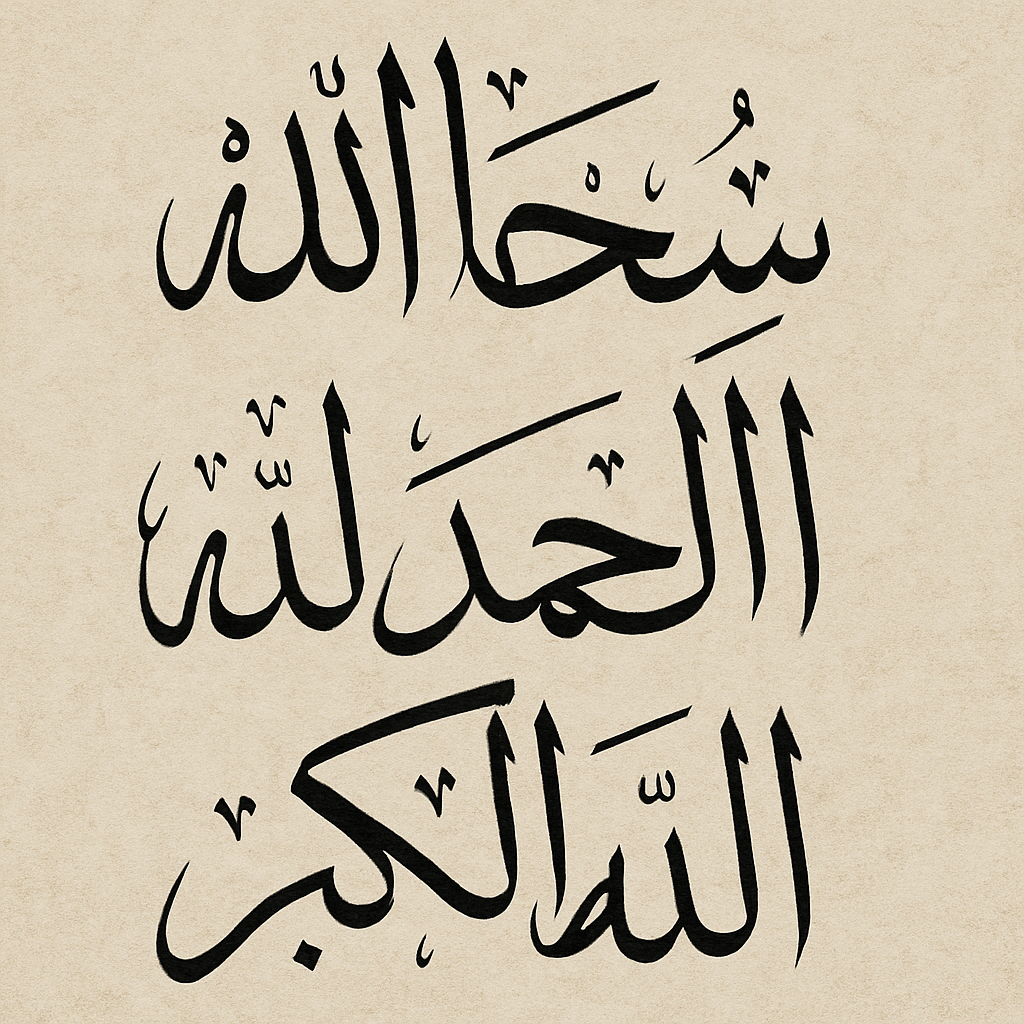 سحا الله
االحمد لله
الله الكبر